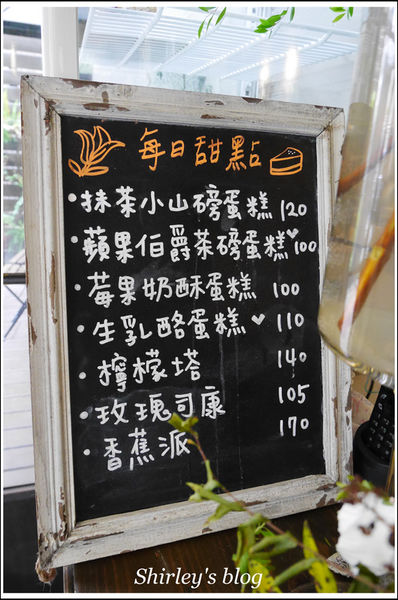 每日甜點
•抹茶小山磅蛋糕 120
•蘋果伯爵茶磅蛋糕♥100
•莓果奶酥蛋糕 100
•生乳酪蛋糕 ♥ 110
•檸檬塔 140
•玫瑰司康 105
•香蕉派 170
Shirley's blog